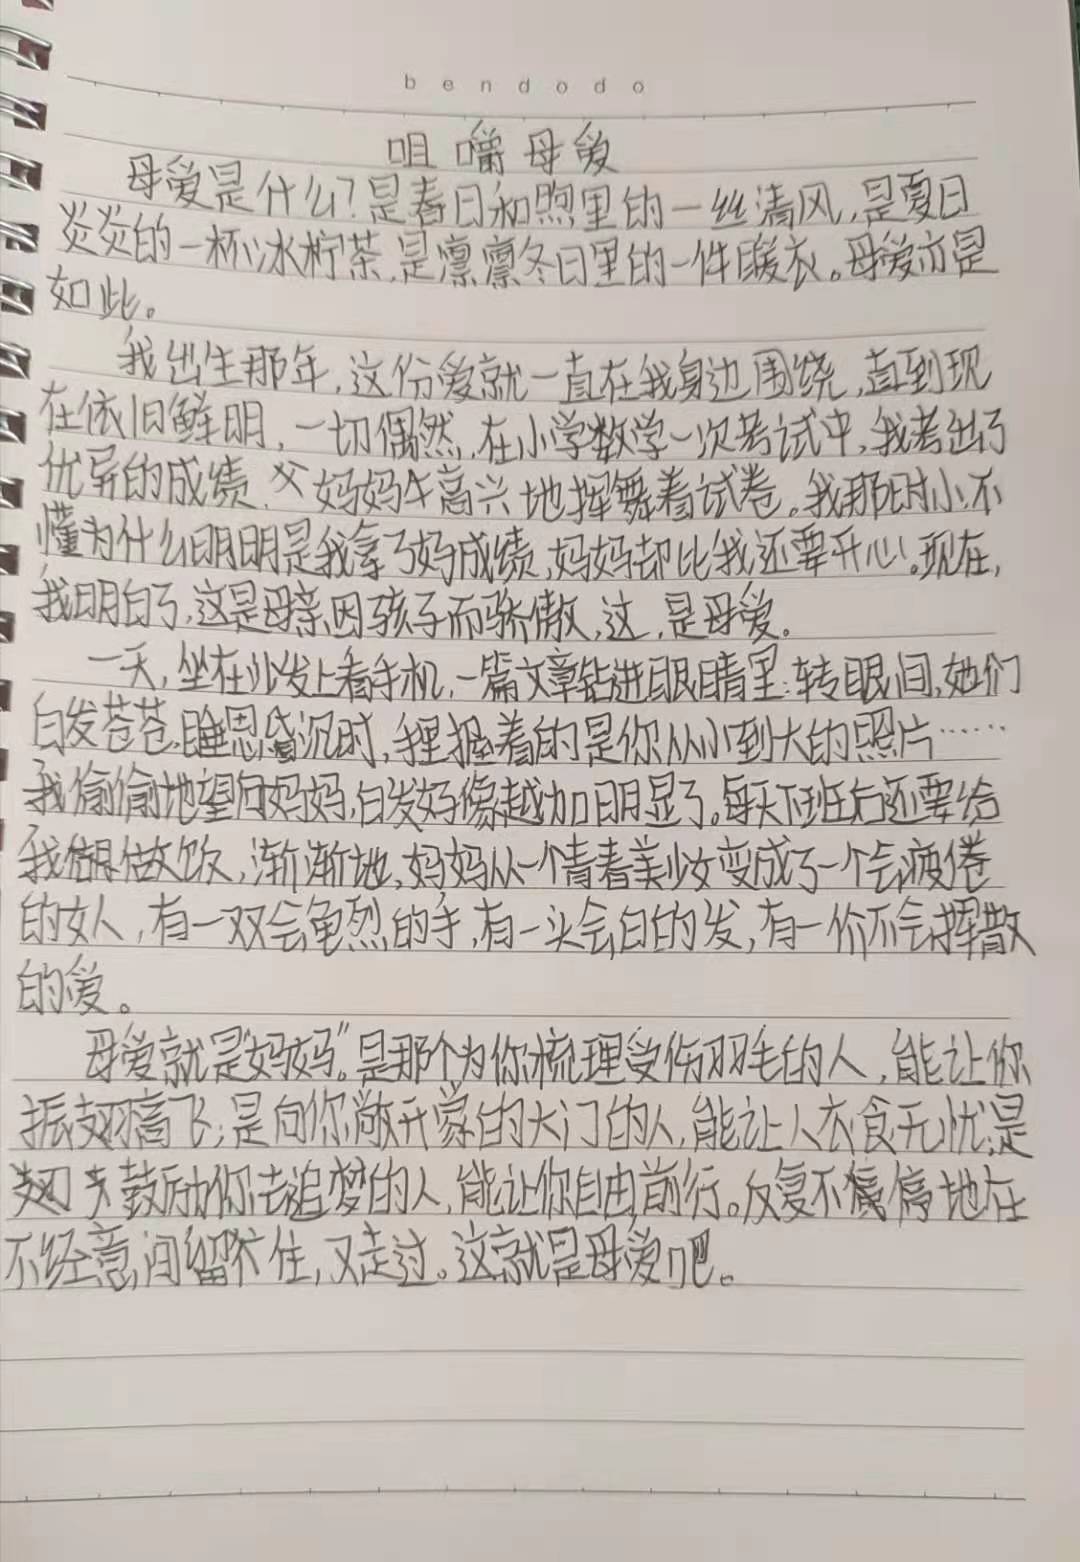 bendodo
咀嚼母爱
母爱是什么?是春日和煦里的一丝清风,是夏日
炎炎的一杯冰柠茶,是凛凛冬日里的一件暖衣。母爱亦是
如此。
我出生那年,这份爱就一直在我身边围绕,直到现
在依旧鲜明,一切偶然,在小学数学一次考试中,我考出了
优异的成绩,妈妈高兴地挥舞着试卷。我那时小不
懂为什么明明是我拿了好成绩,妈妈却比我还要开心!现在,
我明白了,这是母亲因孩子而骄傲,这,是母爱。
一天,坐在沙发上看手机,一篇文章钻进眼睛里:转眼间,她们
白发苍苍,睡思昏沉时,握着的是你从小到大的照片……
我偷偷地望向妈妈,白发好像越加明显了。每天下班后还要给
我做饭,渐渐地,妈妈从一个青春美少女变成了一个会疲倦
的女人,有一双会龟烈的手,有一头会白的发,有一份不会挥散
的爱。
母爱就是"妈妈"。是那个为你梳理受伤羽毛的人,能让你
振翅高飞;是向你敞开家的大门的人,能让人衣食无忧;是
鼓励你去追梦的人,能让你自由前行。反复不 地在
不经意间留住,又走过。这就是母爱吧。